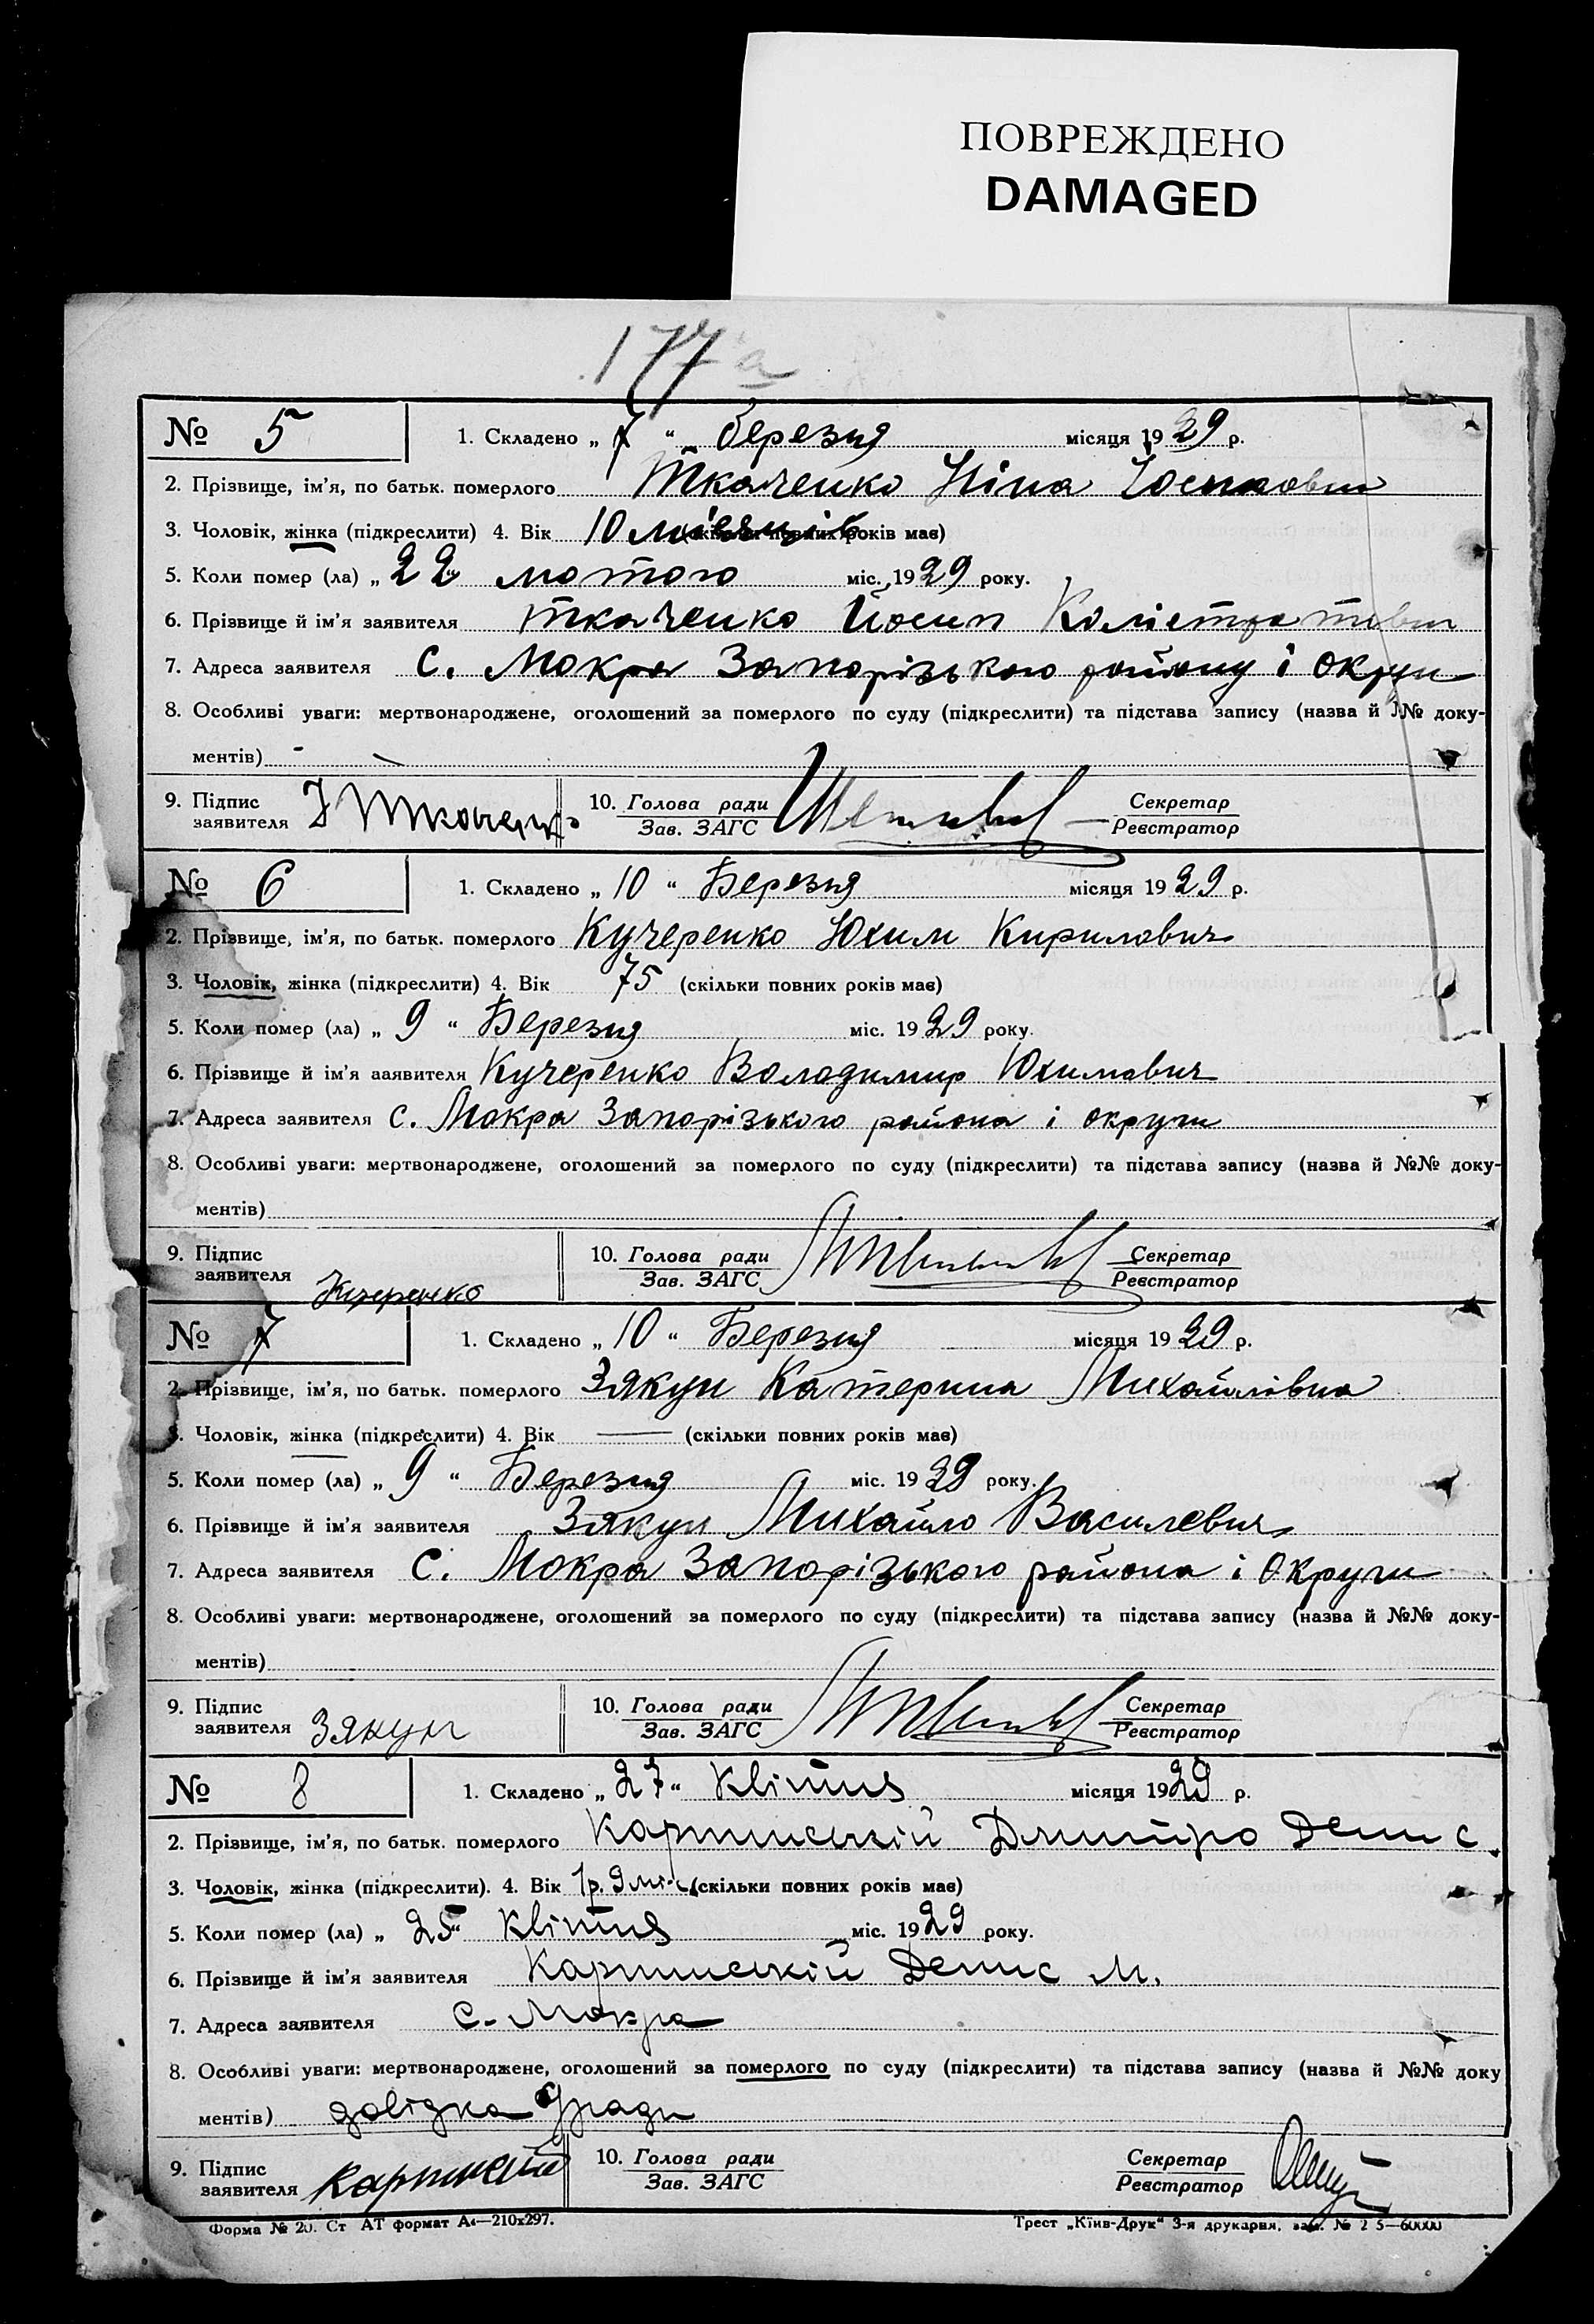 ПОВРЕЖДЕНО
DAMAGED
177 а
№ 5 1. Складено „ 7 “ березня місяця 1929 р.
2. Прізвище, ім'я, по батьк. померлого Ткаченко Ніна
3. Чоловік, жінка (підкреслити) 4. Вік 10 місяців років має)
5. Коли помер (ла) „ 22 “ лютого міс. 1929 року.
6. Прізвище й ім'я заявителя Ткаченко Йосип
7. Адреса заявителя С. Мокра Запорізького району і округи
8. Особливі уваги: мертвонароджене, оголошений за померлого по суду (підкреслити) та підстава запису (назва й №№ доку-
ментів) -
9. Підпис заявителя Ткаченко 10. Голова ради Зав. ЗАГС Секретар Реєстратор
№ 6 1. Складено „ 10 “ Березня місяця 1929 р.
2. Прізвище, ім'я, по батьк. померлого Кучеренко Юхим Кирилович
3. Чоловік, жінка (підкреслити) 4. Вік 75 (скільки повних років має)
5. Коли помер (ла) „ 9 “ Березня міс. 1929 року.
6. Прізвище й ім'я заявителя Кучеренко Володимир Юхимович
7. Адреса заявителя С. Мокра Запорізького района і округи
8. Особливі уваги: мертвонароджене, оголошений за померлого по суду (підкреслити) та підстава запису (назва й №№ доку-
ментів)
9. Підпис заявителя Кучеренко 10. Голова ради Зав. ЗАГС Секретар Реєстратор
№ 7 1. Складено „ 10 “ Березня місяця 1929 р.
2. Прізвище, ім'я, по батьк. померлого Зякун Катерина Михайлівна
3. Чоловік, жінка (підкреслити) 4. Вік — (скільки повних років має)
5. Коли помер (ла) „ 9 “ Березня міс. 1929 року.
6. Прізвище й ім'я заявителя Зякун Михайло Василевич
7. Адреса заявителя С. Мокра Запорізького района і Округи
8. Особливі уваги: мертвонароджене, оголошений за померлого по суду (підкреслити) та підстава запису (назва й №№ доку-
ментів)
9. Підпис заявителя Зякун 10. Голова ради Зав. ЗАГС Секретар Реєстратор
№ 8 1. Складено „ 27 “ Квітня місяця 1929 р.
2. Прізвище, ім'я, по батьк. померлого Дмитро Денис.
3. Чоловік, жінка (підкреслити). 4. Вік 1р. 9 міс (скільки повних років має)
5. Коли помер (ла) „ 25 “ Квітня міс. 1929 року.
6. Прізвище й ім'я заявителя Денис М.
7. Адреса заявителя с. Мокра
8. Особливі уваги: мертвонароджене, оголошений за померлого по суду (підкреслити) та підстава запису (назва й №№ доку
ментів) довідка
9. Підпис заявителя 10. Голова ради Зав. ЗАГС Секретар Реєстратор
Форма № 20. Ст АТ формат А4—210х297. Трест „Київ-Друк“ 3-я друкарня, зам. №